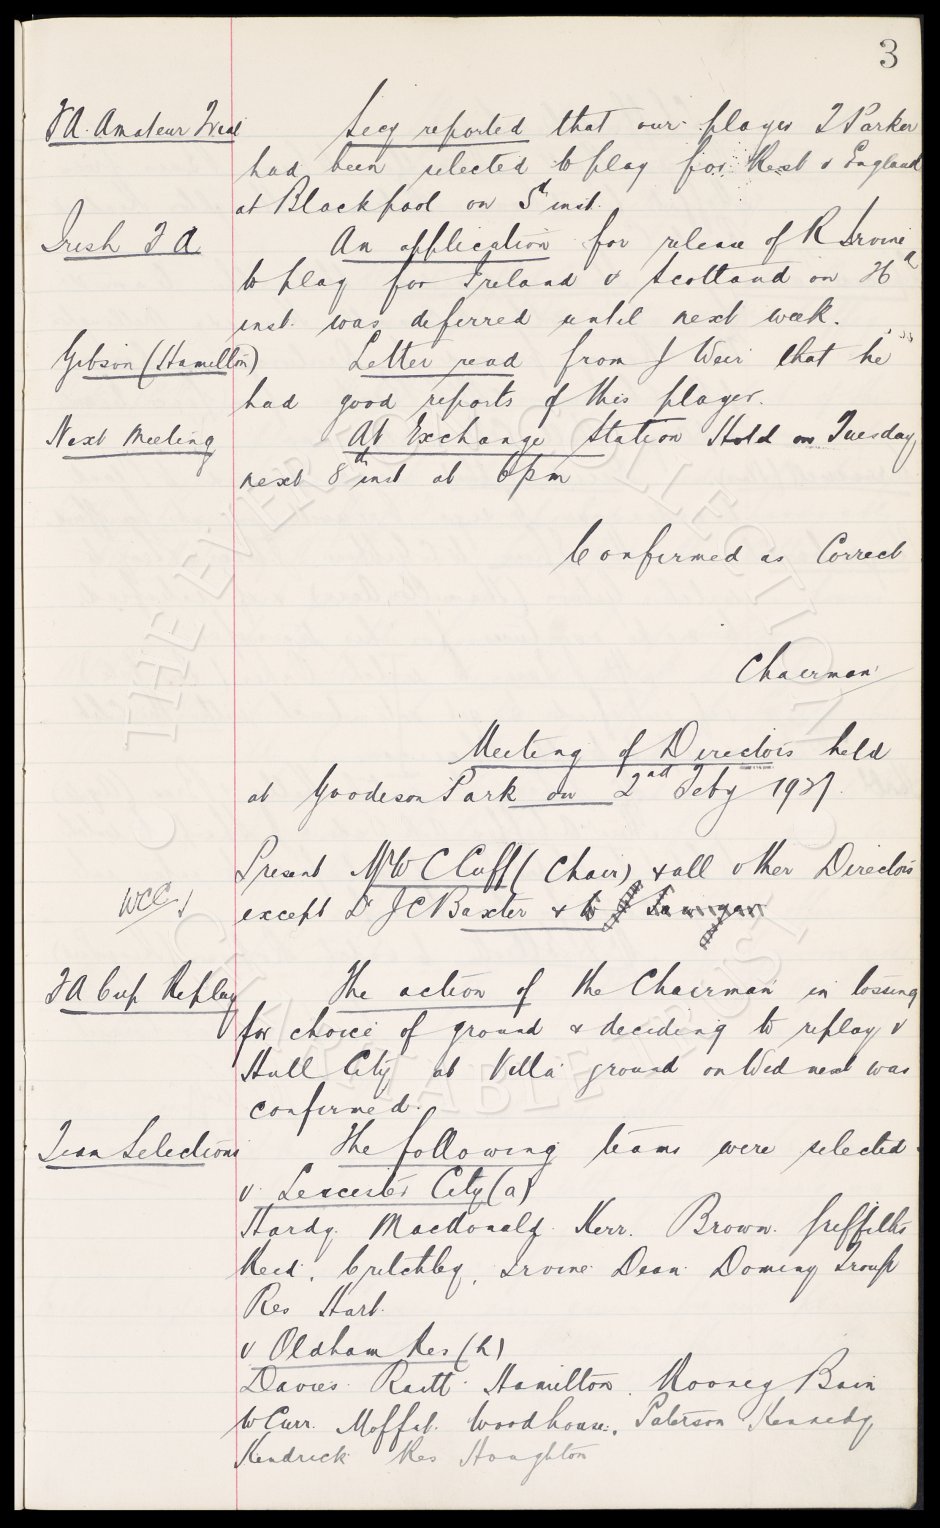 3
F A. Amateur Trial
Secy reported that our player T Parker
had been selected to play for Rest v England
at Blackpool on 5th inst.
Irish F A
An application for release of R Irvine
to play for Ireland v Scotland on 26th
inst. was deferred until next week.
Gibson (Hamilton)
Letter read from J Weir that he
had good reports of this player.
Next Meeting
At Exchange Station Hotel on Tuesday
next 8th inst at 6pm
Confirmed as Correct
Chairman
Meeting of Directors held
at Goodison Park on 2nd Feby 1927.
Present Mr W C Cuff (Chair) & all other Directors
WCC
except Dr J C Baxter &
F A Cup Replay
The action of the Chairman in tossing
for choice of ground & deciding to replay v
Hull City at Villa ground on Wed next was
confirmed.
Team Selections
The following teams were selected
v. Leicester City (a)
Hardy. Macdonald. Kerr. Brown. Griffiths
Reid. Critchley, Irvine Dean Dominy Troup
Res Hart.
v Oldham Res (h)
Davies. Raitt. Hamilton. Rooney Bain
Moffat. Woodhouse. Paterson Kennedy
Kendrick Res Houghton
THE EVERTON COLLECTION
CHARITABLE TRUST